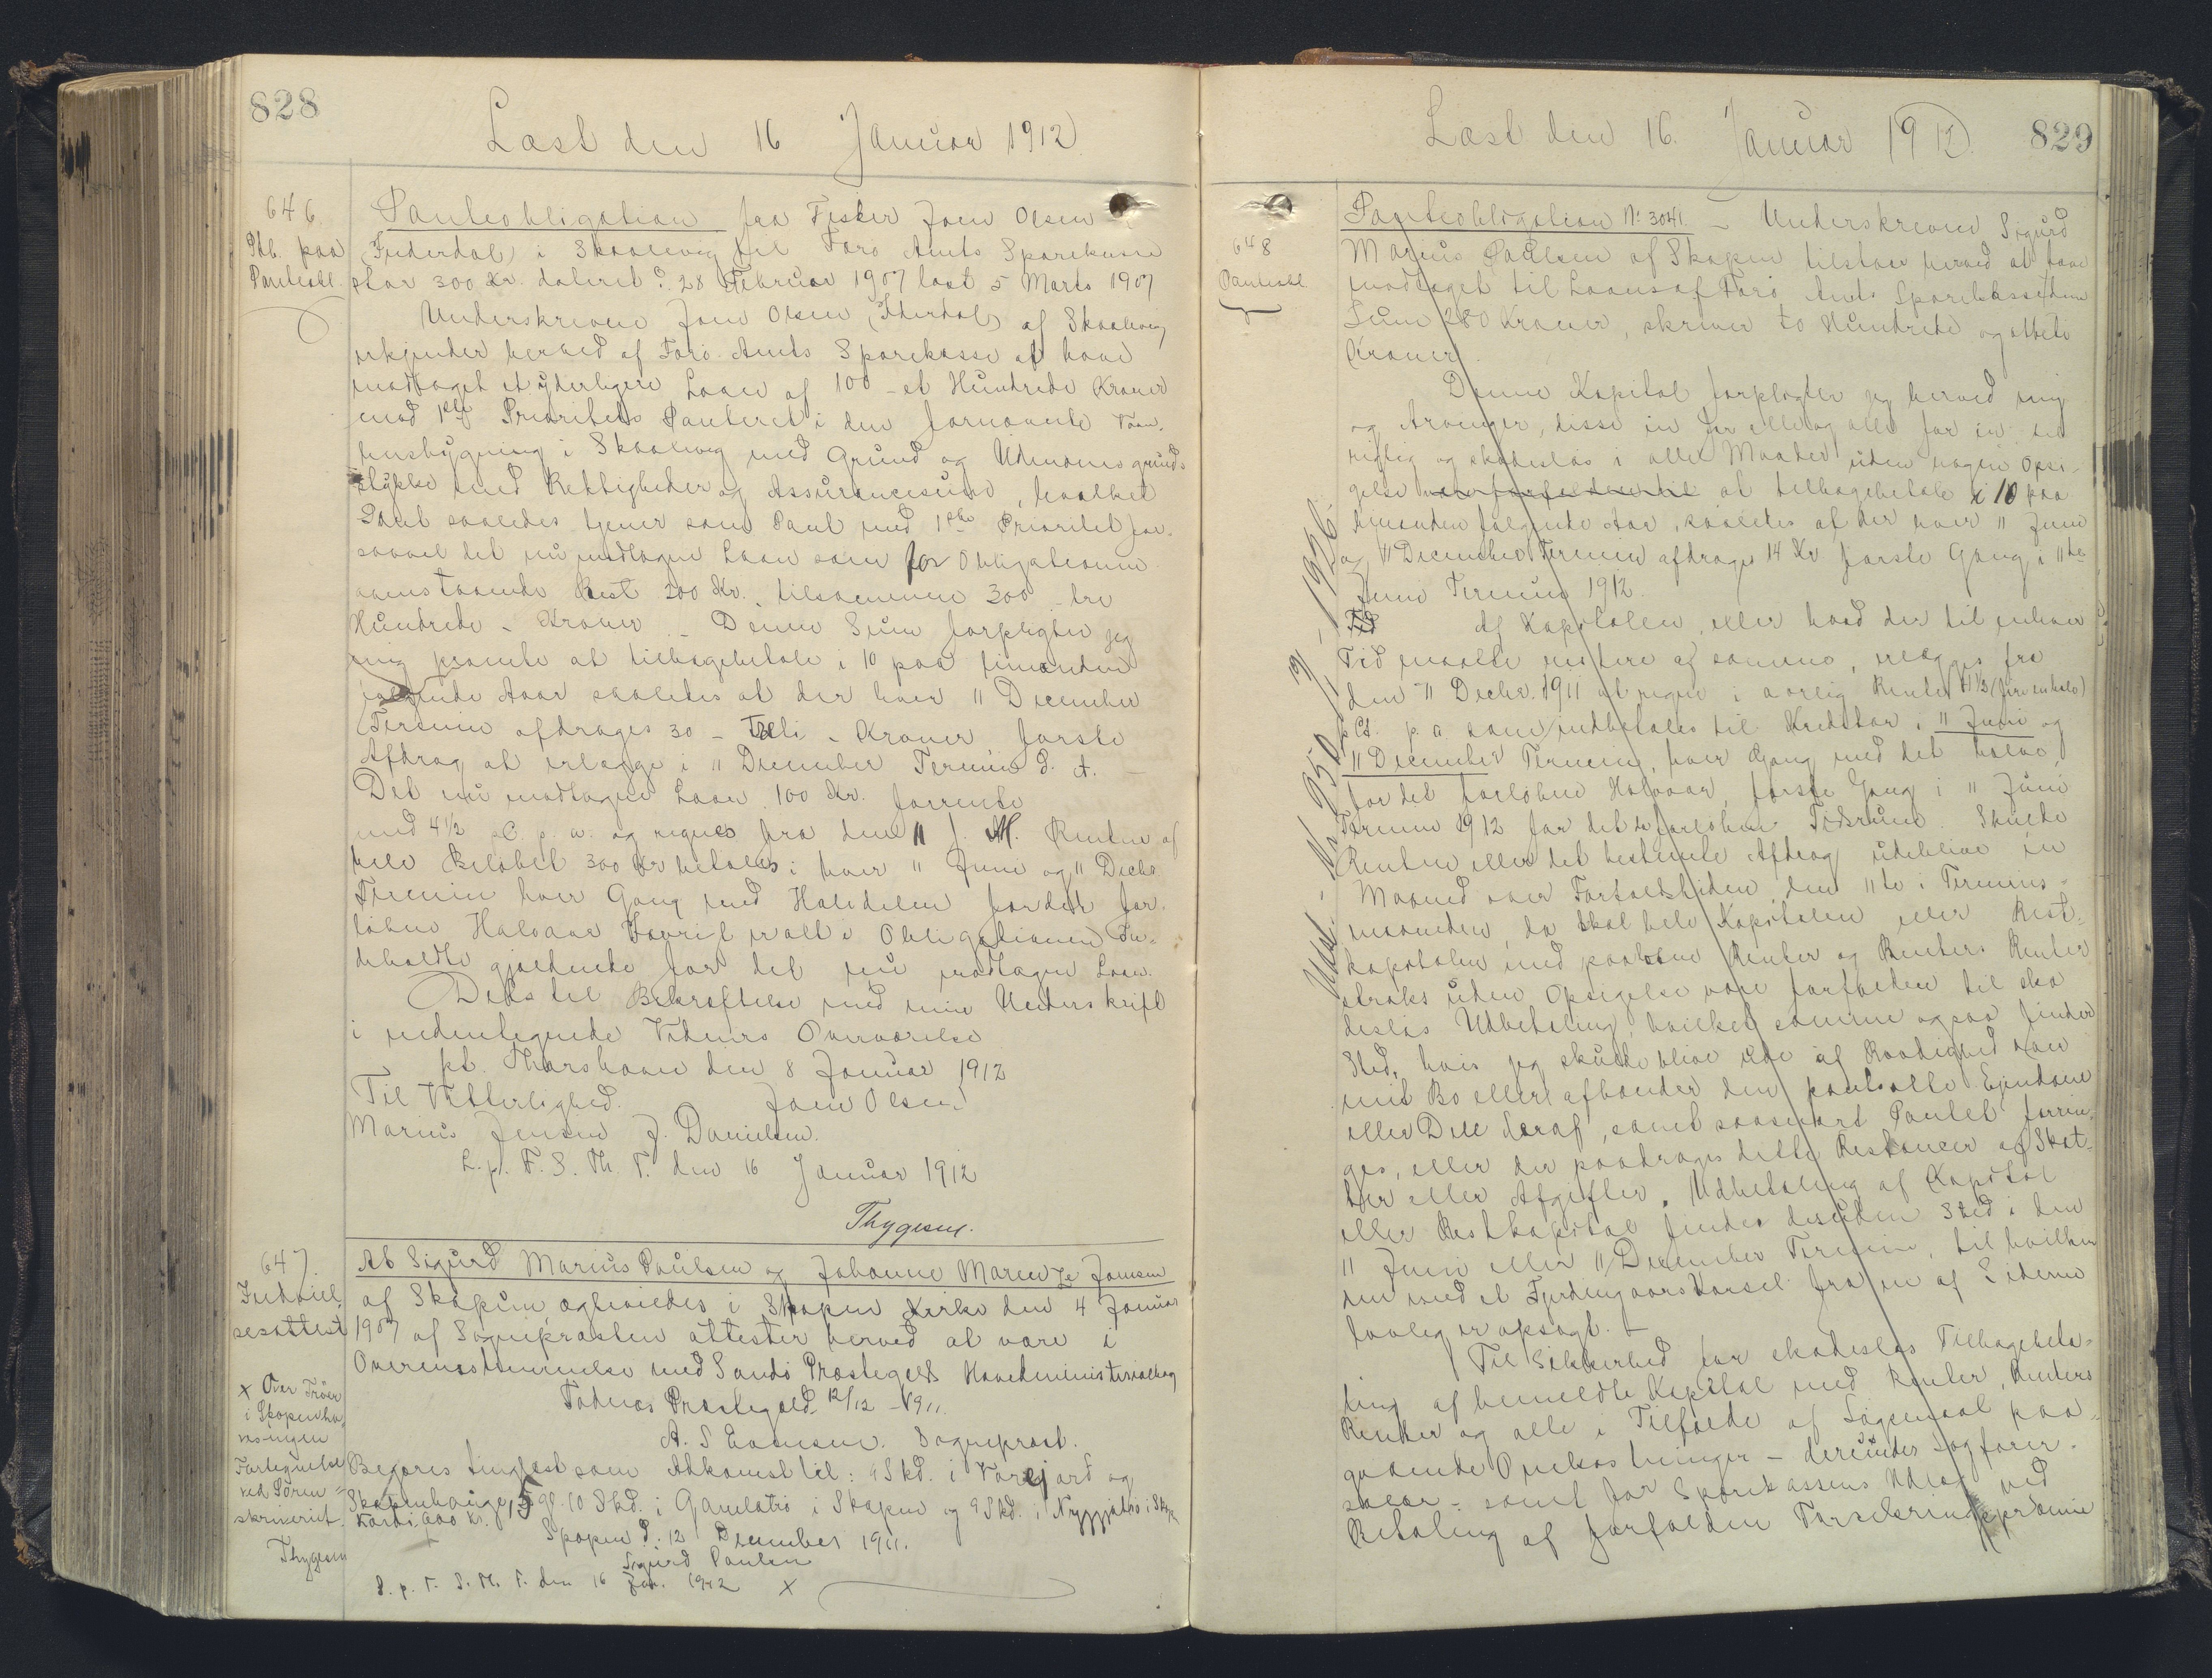 828
Læst den 16 Januar 1912
646.
Ptb. paa
Panteobl.
Panteobligation fra Fisker Joen Olsen
i Skaalevig til Færø Amts Sparekasse
stor 300 Kr. dateret d. 28 Februar 1907 læst 5 Marts 1907
Underskrevne Joen Olsen af Skaalevig
erkjender herved af Færø Amts Sparekasse at have
modtaget et yderligere Laan af 100 - et Hundrede Kroner
mod 1ste Prioritets Panteret i den fornævnte Vaan-
husbygning i Skaalevig med Grund og Udmarksgrunds
stykke med Rettigheder og Assurancesum, hvilket
Pant saaledes tjener som Pant med 1ste Prioritet for
saavel det nu modtagne Laan som for Obligationens
omstaaende Rest 200 Kr. tilsammen 300 - tre
Hundrede - Kroner - Denne Sum forpligter jeg
mig at tilbagebetale i 10 paa hinanden
følgende Aar saaledes at der hver 11 December
Termin afdrages 30 - Tredive - Kroner første
Afdrag at erlægge i 11 December Termin d. A. -
Det nu modtagne Laan 100 Kr. forrentes
med 4½ pC. p. a. og regnes fra den 11 f. M. Renten af
hele Beløbet 300 Kr betales i hver 11 Juni og 11 Decbr
Termin hver Gang med Halvdelen for det for-
løbne Halvaar Iøvrigt er alt i Obligationen In-
deholdte gjældende for det nu modtagne Laan.
Dets til Bekræftelse med min Underskrift
i nedentegnede Vidners Overværelse
pt. Thorshavn den 8 Januar 1912
Til Vitterlighed. Joen Olsen
Marius Jensen J. Danielsen.
L. p. F. S. Th. T. den 16 Januar 1912
Thygesen.
647.
Indviel
sesattest
At Sigurd Marius Poulsen og Johanne Maren Joensen
af Skopun ægteviedes i Skopun Kirke den 4 Januar
1907 af Sognepræsten attesteres herved at være i
Overensstemmelse med Sandø Præstegjelds Hovedministerialbog
Præstegjeld 12/12 - 1911.
A. S Evensen. Sognepræst.
x Over Tröer
i Skopenha
ves-
Fortegnelse
ved Sören-
skriveriet.
Thygesen
Begæres tinglæst som Adkomst til: 4 Skd. i og
Skopenhauge, 5 gl. 10 Skd. i Gamlatrø i Skopun og 9 Skd. i Nyggjatrø i Skopun
Værdi 400 Kr.
Skopun d. 12 December 1911.
Sigurd Poulsen
L. p. F. S. Th. T. den 16 Jan. 1912 x
829
Læst den 16. Januar 1912.
648
Panteobl
Panteobligation No 3041 - Underskrevne Sigurd
Marius Poulsen af Skopun tilstaar herved at have
modtaget til Laans af Færø Amts Sparekasse den
Sum 280 Kroner, skriver to Hundrede og otteti
Kroner.
Denne Kapital forpligter jeg herved mig
og Arvinger, disse en for alle og alle for en til
rigtig og skadesløs i alle Maader uden nogen Opsi-
gelse at tilbagebetale i 10 paa
hinanden følgende Aar, saaledes at der hver 11 Juni
og 11 December Termin afdrages 14 Kr første Gang i 11te
Juni Termin 1912.
Af Kapitalen, eller hvad der til enhver
Tid maatte restere af samme, erlægges fra
den 11 Decbr. 1911 at regne i aarlig Rente 4½ (fire en halv)
pCt. p. a. som indbetales til Kreditor i 11 Juni og
11 December Termin, hver Gang med det halve,
for det forløbne Halvaar, første Gang i 11 Juni
Termin 1912 for det da forløbne Tidsrum. Skulde
Renten eller det bestemte Afdrag udeblive en
Maaned over Forfaldstiden, den 11te i Termins-
maaneden, da skal hele Kapitalen eller Rest-
kapitalen med paaløbne Renter og Renters Renter
straks uden Opsigelse være forfalden til ska
desløs Udbetaling, hvilket samme ogsaa finder
Sted, hvis jeg skulde blive ude af Raadighed over
mit Bo eller afhænder den pantsatte Ejendom
eller Dele deraf, samt saasnart Pantet forrin-
ges, eller der paadrages dette Restancer af Skat-
ter eller Afgifter. Udbetaling af Kapital
eller Restkapital finder desuden Sted i den
11 Juni eller 11 December Termin, til hvilken
den med et Fjerdingaars Varsel fra en af Siderne
lovlig er opsagt.
Til Sikkerhed for skadesløs Tilbagebeta-
ling af bemeldte Kapital med Renter, Renters
Renter og alle i Tilfælde af Søgsmaal paa-
gaaende Omkostninger - derunder Sagfører-
salær - samt for Sparekassens Udlæg ved
Betaling af forfalden Forsikringspræmie